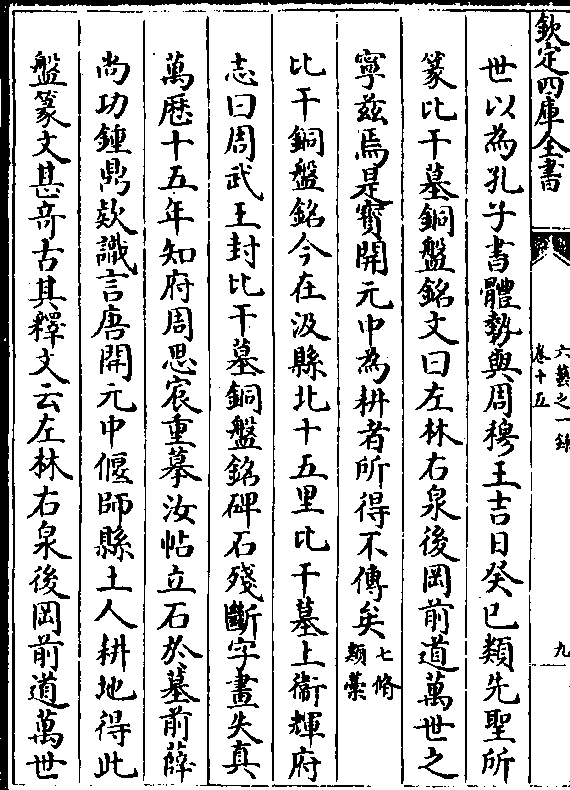 欽定四庫全書
六藝之一錄
卷十五
九
世以為孔子書體勢與周穆王吉日癸巳類先聖所
篆比干墓銅盤銘文曰左林右泉後岡前道萬世之
寧兹焉是寳開元中為耕者所得不傳矣七脩類藁
比干銅盤銘今在汲縣北十五里比干墓上衞輝府
志曰周武王封比干墓銅盤銘碑石殘斷字畫失真
萬歷十五年知府周思宸重摹汝帖立石於墓前薛
尚功鍾鼎欵識言唐開元中偃師縣土人耕地得此
盤篆文甚竒古其釋文云左林右泉後岡前道萬世